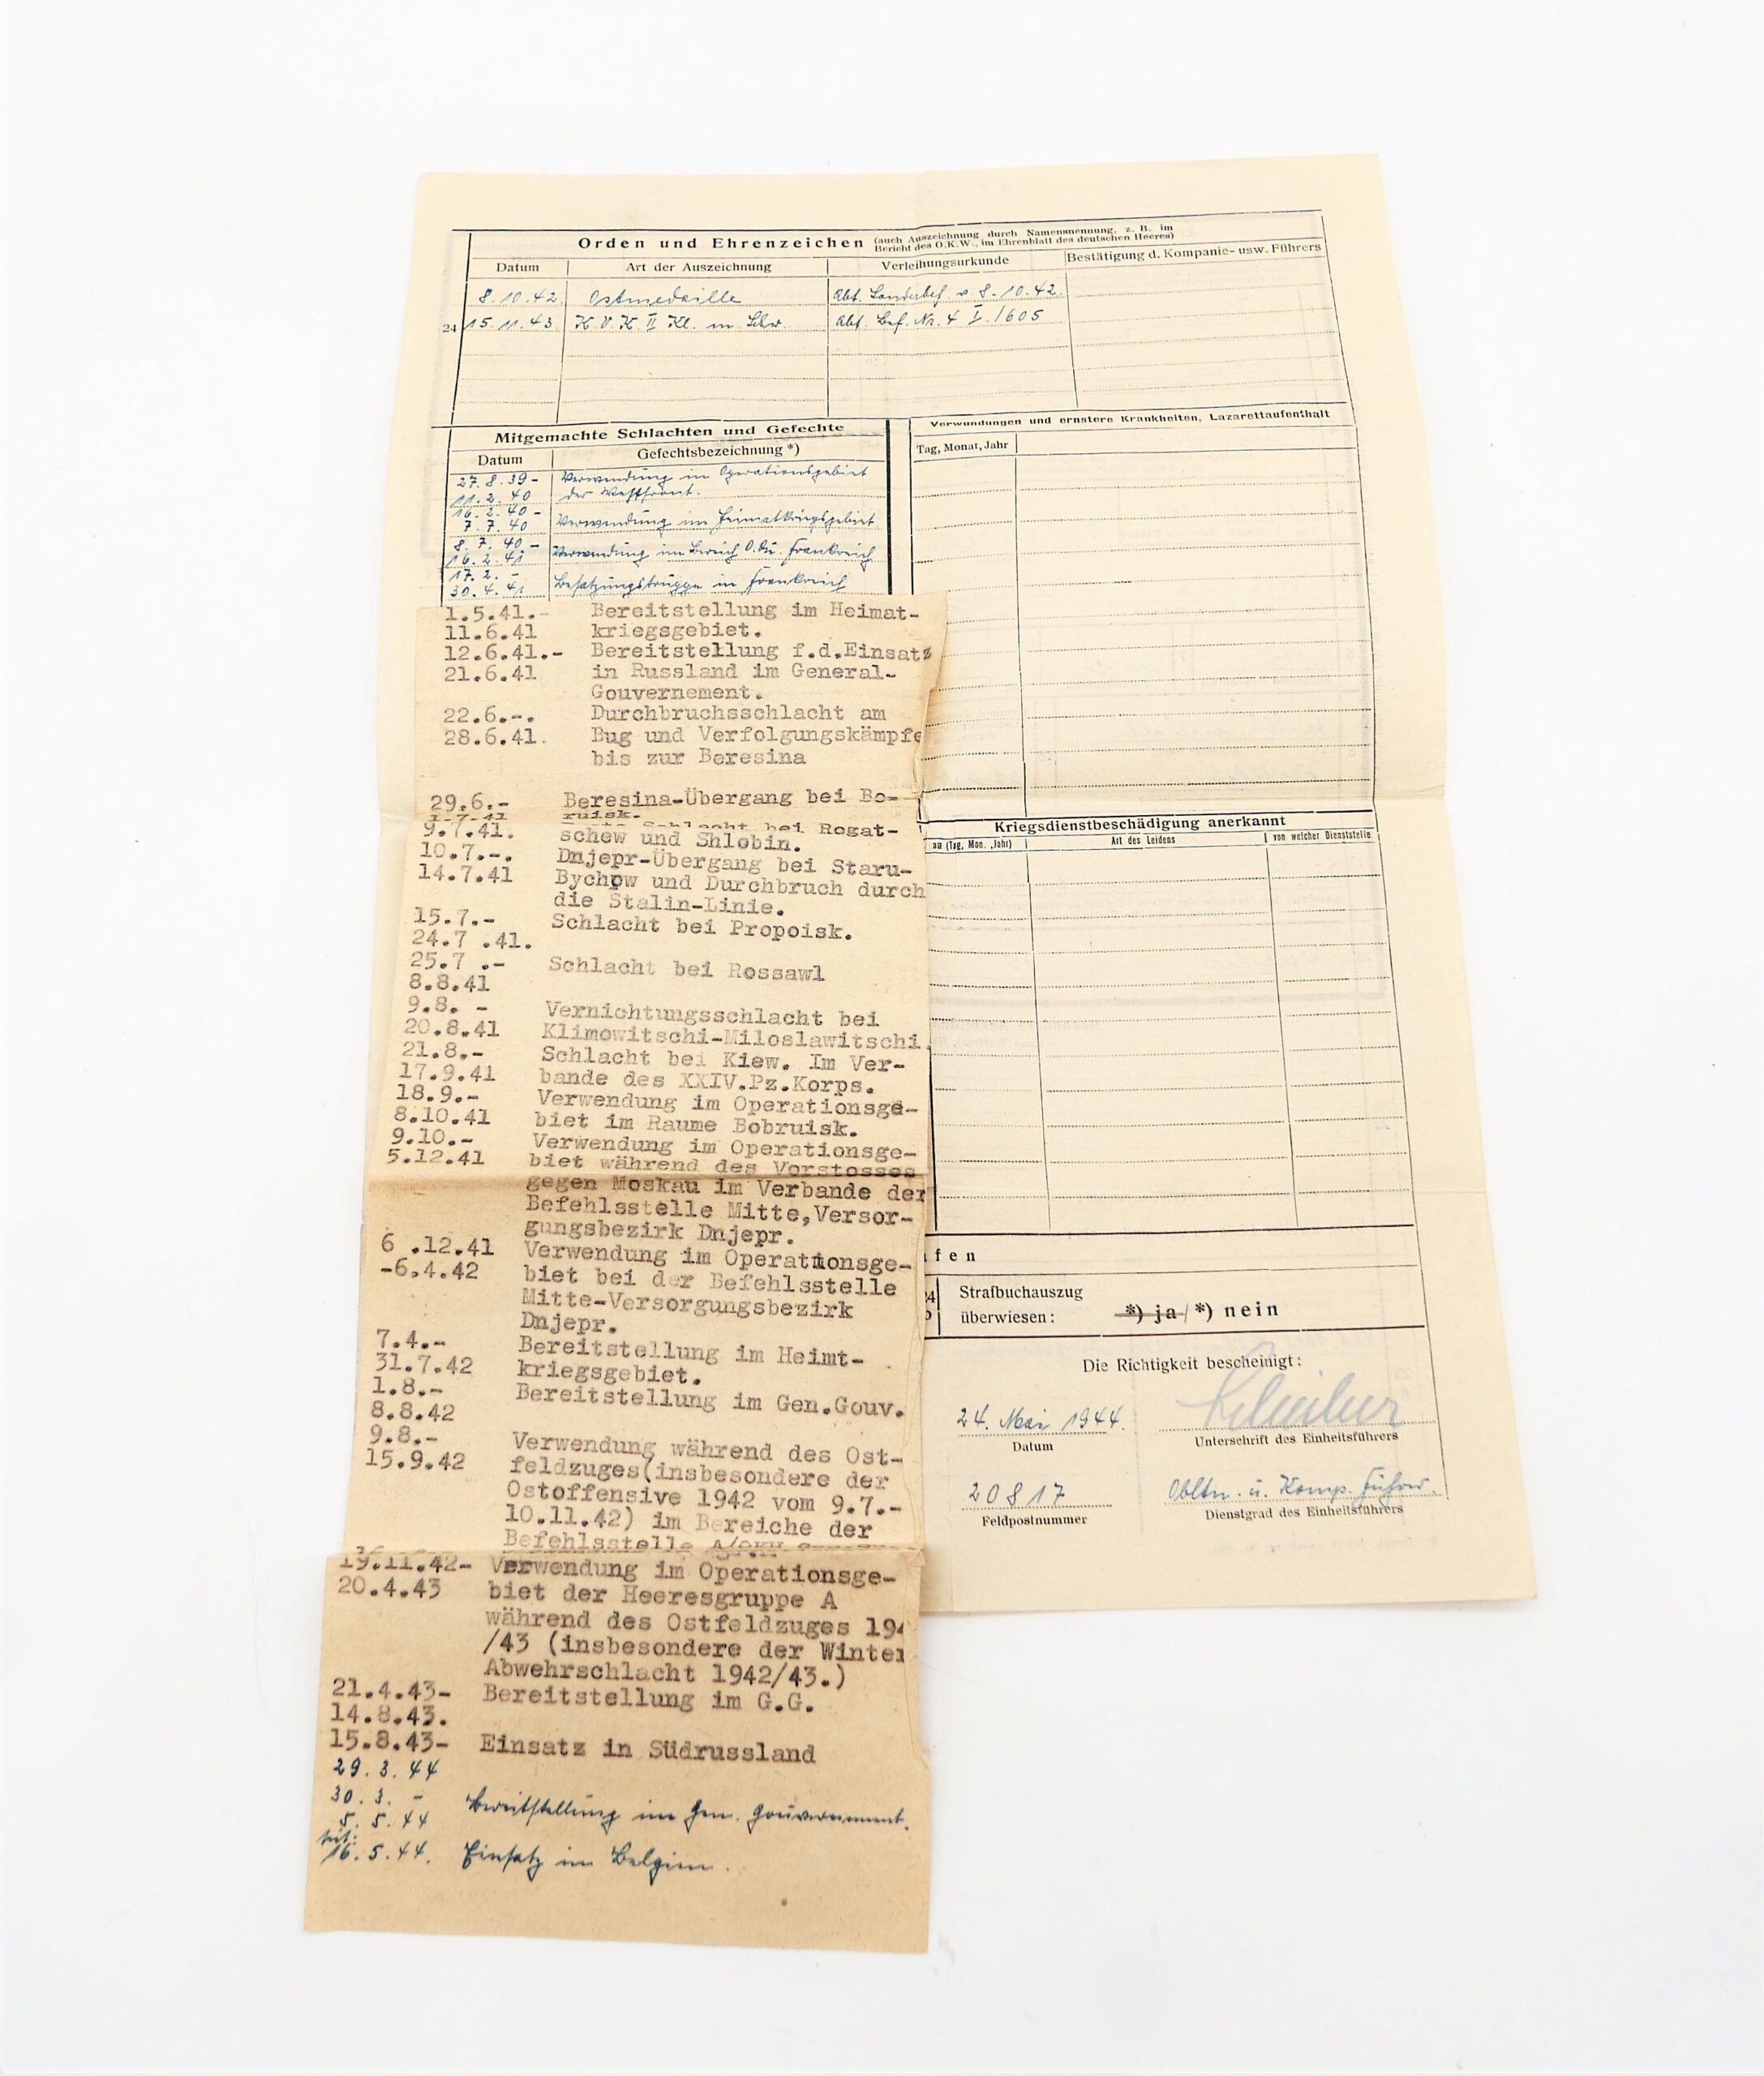 Orden und Ehrenzeichen (auch Auszeichnung durch Namensnennung, z. B. im
Bericht des O.K.W., im Ehrenblatt des deutschen Heeres)
Datum Art der Auszeichnung Verleihungsurkunde Bestätigung d. Kompanie- usw. Führers
8.10.42. Ostmedaille Abt. Sonderbef. v. 8.10.42.
24 15.11.43. K.V.K. II Kl. m. Schw. Abt. Bef. Nr. 4 I./605
Mitgemachte Schlachten und Gefechte
Datum Gefechtsbezeichnung *)
27.8.39- Verwendung im Operationsgebiet
11.2.40 der Westfront.
16.2.40-
7.7.40 Verwendung im Heimatkriegsgebiet
8.7.40-
16.2.41 Verwendung im Bereich O.Qu. Frankreich
17.2.-
30.4.41 Besatzungstruppe in Frankreich
1.5.41.- Bereitstellung im Heimat-
11.6.41 kriegsgebiet.
12.6.41.- Bereitstellung f.d.Einsatz
21.6.41 in Russland im General-
Gouvernement.
22.6.-. Durchbruchsschlacht am
28.6.41. Bug und Verfolgungskämpfe
bis zur Beresina
29.6.- Beresina-Übergang bei Bo-
ruisk.
Schlacht bei Rogat-
9.7.41. schew und Shlobin.
10.7.-. Dnjepr-Übergang bei Staru-
14.7.41 Bychow und Durchbruch durch
die Stalin-Linie.
15.7.- Schlacht bei Propoisk.
24.7 .41.
25.7 .- Schlacht bei Rossawl
8.8.41
9.8. - Vernichtungsschlacht bei
20.8.41 Klimowitschi-Miloslawitschi.
21.8.- Schlacht bei Kiew. Im Ver-
17.9.41 bande des XXIV.Pz.Korps.
18.9.- Verwendung im Operationsge-
8.10.41 biet im Raume Bobruisk.
9.10.- Verwendung im Operationsge-
5.12.41 biet während des Vorstosses
gegen Moskau im Verbande der
Befehlsstelle Mitte,Versor-
gungsbezirk Dnjepr.
6 .12.41 Verwendung im Operationsge-
-6.4.42 biet bei der Befehlsstelle
Mitte-Versorgungsbezirk
Dnjepr.
7.4.- Bereitstellung im Heimt-
31.7.42 kriegsgebiet.
1.8.- Bereitstellung im Gen.Gouv.
8.8.42
9.8.- Verwendung während des Ost-
15.9.42 feldzuges(insbesondere der
Ostoffensive 1942 vom 9.7.-
10.11.42) im Bereiche der
Befehlsstelle
19.11.42- Verwendung im Operationsge-
20.4.43 biet der Heeresgruppe A
während des Ostfeldzuges 194
/43 (insbesondere der Winter
Abwehrschlacht 1942/43.)
21.4.43- Bereitstellung im G.G.
14.8.43.
15.8.43- Einsatz in Südrussland
29.3.44
30.3. -
5.5.44 Bereitstellung im Gen. Gouvernement.
seit:
16.5.44. Einsatz in Belgien.
Verwundungen und ernstere Krankheiten, Lazarettaufenthalt
Tag, Monat, Jahr
Kriegsdienstbeschädigung anerkannt
an (Tag, Mon., Jahr) Art des Leidens von welcher Dienststelle
fen
Strafbuchauszug
überwiesen: *) ja / *) nein
Die Richtigkeit bescheinigt:
24. Mai 1944.
Datum Unterschrift des Einheitsführers
20817 Obltn. u. Komp. Führer.
Feldpostnummer Dienstgrad des Einheitsführers